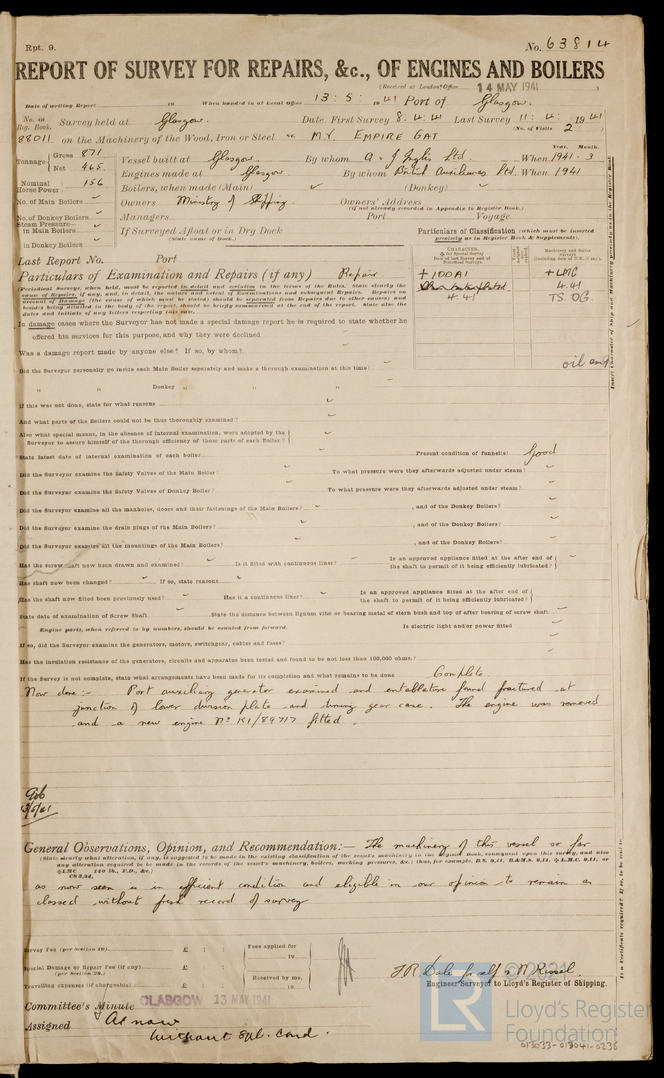 Rpt. 9.
No. 63814
REPORT OF SURVEY FOR REPAIRS, &c., OF ENGINES AND BOILERS
(Received at London Office 14 MAY 1941)
Date of writing Report 19 When handed in at Local Office 13 : 5 : 1941 Port of Glasgow.
No. in Reg. Book. Survey held at Glasgow. Date. First Survey 8 : 4 : 41 Last Survey 11 : 4 : 1941
(No. of Visits 2)
88011 on the Machinery of the Wood, Iron or Steel M.V. EMPIRE GAT
Year. Month.
Tonnage Gross 871 Net 465 Vessel built at Glasgow. By whom A & J Inglis Ltd. When 1941 - 3
Engines made at Glasgow. By whom British Auxiliaries Ltd. When 1941
Nominal Horse Power 156 Boilers, when made (Main) (Donkey)
No. of Main Boilers Owners Ministry of Shipping. Owners' Address
(if not already recorded in Appendix to Register Book.)
No. of Donkey Boilers Managers Port Voyage
Steam Pressure— in Main Boilers If Surveyed Afloat or in Dry Dock
(State name of Dock.)
in Donkey Boilers
Particulars of Classification (which must be inserted precisely as in Register Book & Supplements).
Last Report No. Port
Particulars of Examination and Repairs (if any) Repair.
+100A1 +LMC
4.41 4.41
TS. OG.
oil eng
In damage cases where the Surveyor has not made a special damage report he is required to state whether he
offered his services for this purpose, and why they were declined.
Was a damage report made by anyone else? If so, by whom?
Did the Surveyor personally go inside each Main Boiler separately and make a thorough examination at this time?
" " Donkey " " "
If this was not done, state for what reasons
And what parts of the Boilers could not be thoroughly examined?
Also what special means, in the absence of internal examination, were adopted by the
Surveyor to assure himself of the thorough efficiency of those parts of each Boiler?
State latest date of internal examination of each boiler Present condition of funnel(s) Good
Did the Surveyor examine the Safety Valves of the Main Boiler? To what pressure were they afterwards adjusted under steam?
Did the Surveyor examine the Safety Valves of Donkey Boiler? To what pressure were they afterwards adjusted under steam?
Did the Surveyor examine all the manholes, doors and their fastenings of the Main Boilers? , and of the Donkey Boilers?
Did the Surveyor examine the drain plugs of the Main Boilers? , and of the Donkey Boilers?
Did the Surveyor examine all the mountings of the Main Boilers? , and of the Donkey Boilers?
Has the screw shaft now been drawn and examined? Is it fitted with continuous liner? Is an approved appliance fitted at the after end of the shaft to permit of it being efficiently lubricated?
Has shaft now been changed? If so, state reasons
Has the shaft now fitted been previously used? Has it a continuous liner? Is an approved appliance fitted at the after end of the shaft to permit of it being efficiently lubricated?
State date of examination of Screw Shaft State the distance between lignum vitæ or bearing metal of stern bush and top of after bearing of screw shaft
Engine parts, when referred to by numbers, should be counted from forward. Is electric light and/or power fitted
If so, did the Surveyor examine the generators, motors, switchgear, cables and fuses?
Has the insulation resistance of the generators, circuits and apparatus been tested and found to be not less than 100,000 ohms?
If the Survey is not complete, state what arrangements have been made for its completion and what remains to be done Complete
Now done :- Port auxiliary generator examined and entablature found fractured at
junction of lower division plate and timing gear case. The engine was removed
and a new engine No K1/89717 fitted.
General Observations, Opinion, and Recommendation:— The machinery of this vessel so far
as now seen is in efficient condition and eligible in our opinion to remain as
classed without fresh record of survey
Survey Fee (per Section 29) £ : : Fees applied for
19
Special Damage or Repair Fee (if any) £ : :
(per Section 29.)
Received by me,
Travelling expenses (if chargeable) £ : : 19
J R Dale for self & N Kissel.
Engineer Surveyor to Lloyd's Register of Shipping.
Committee's Minute GLASGOW 13 MAY 1941
Assigned As now
Without Spl. Card.
© 2021
LR
Lloyd's Register
Foundation
013033-013041-0236